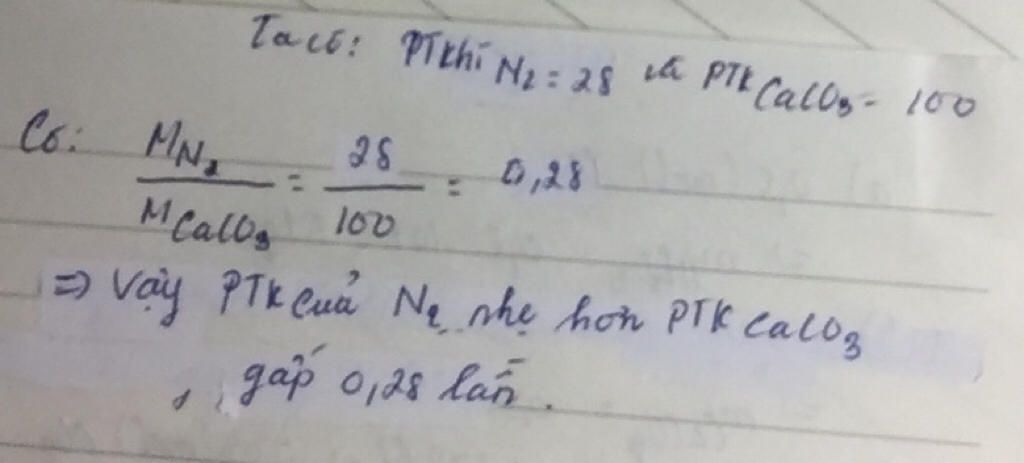 Ta có: PTKhí N₂ = 28 và PTK CaCO₃ = 100
Có: M N₂ / M CaCO₃ = 28 / 100 = 0,28
⇒ Vậy PTK của N₂ nhẹ hơn PTK CaCO₃
, gấp 0,28 lần.